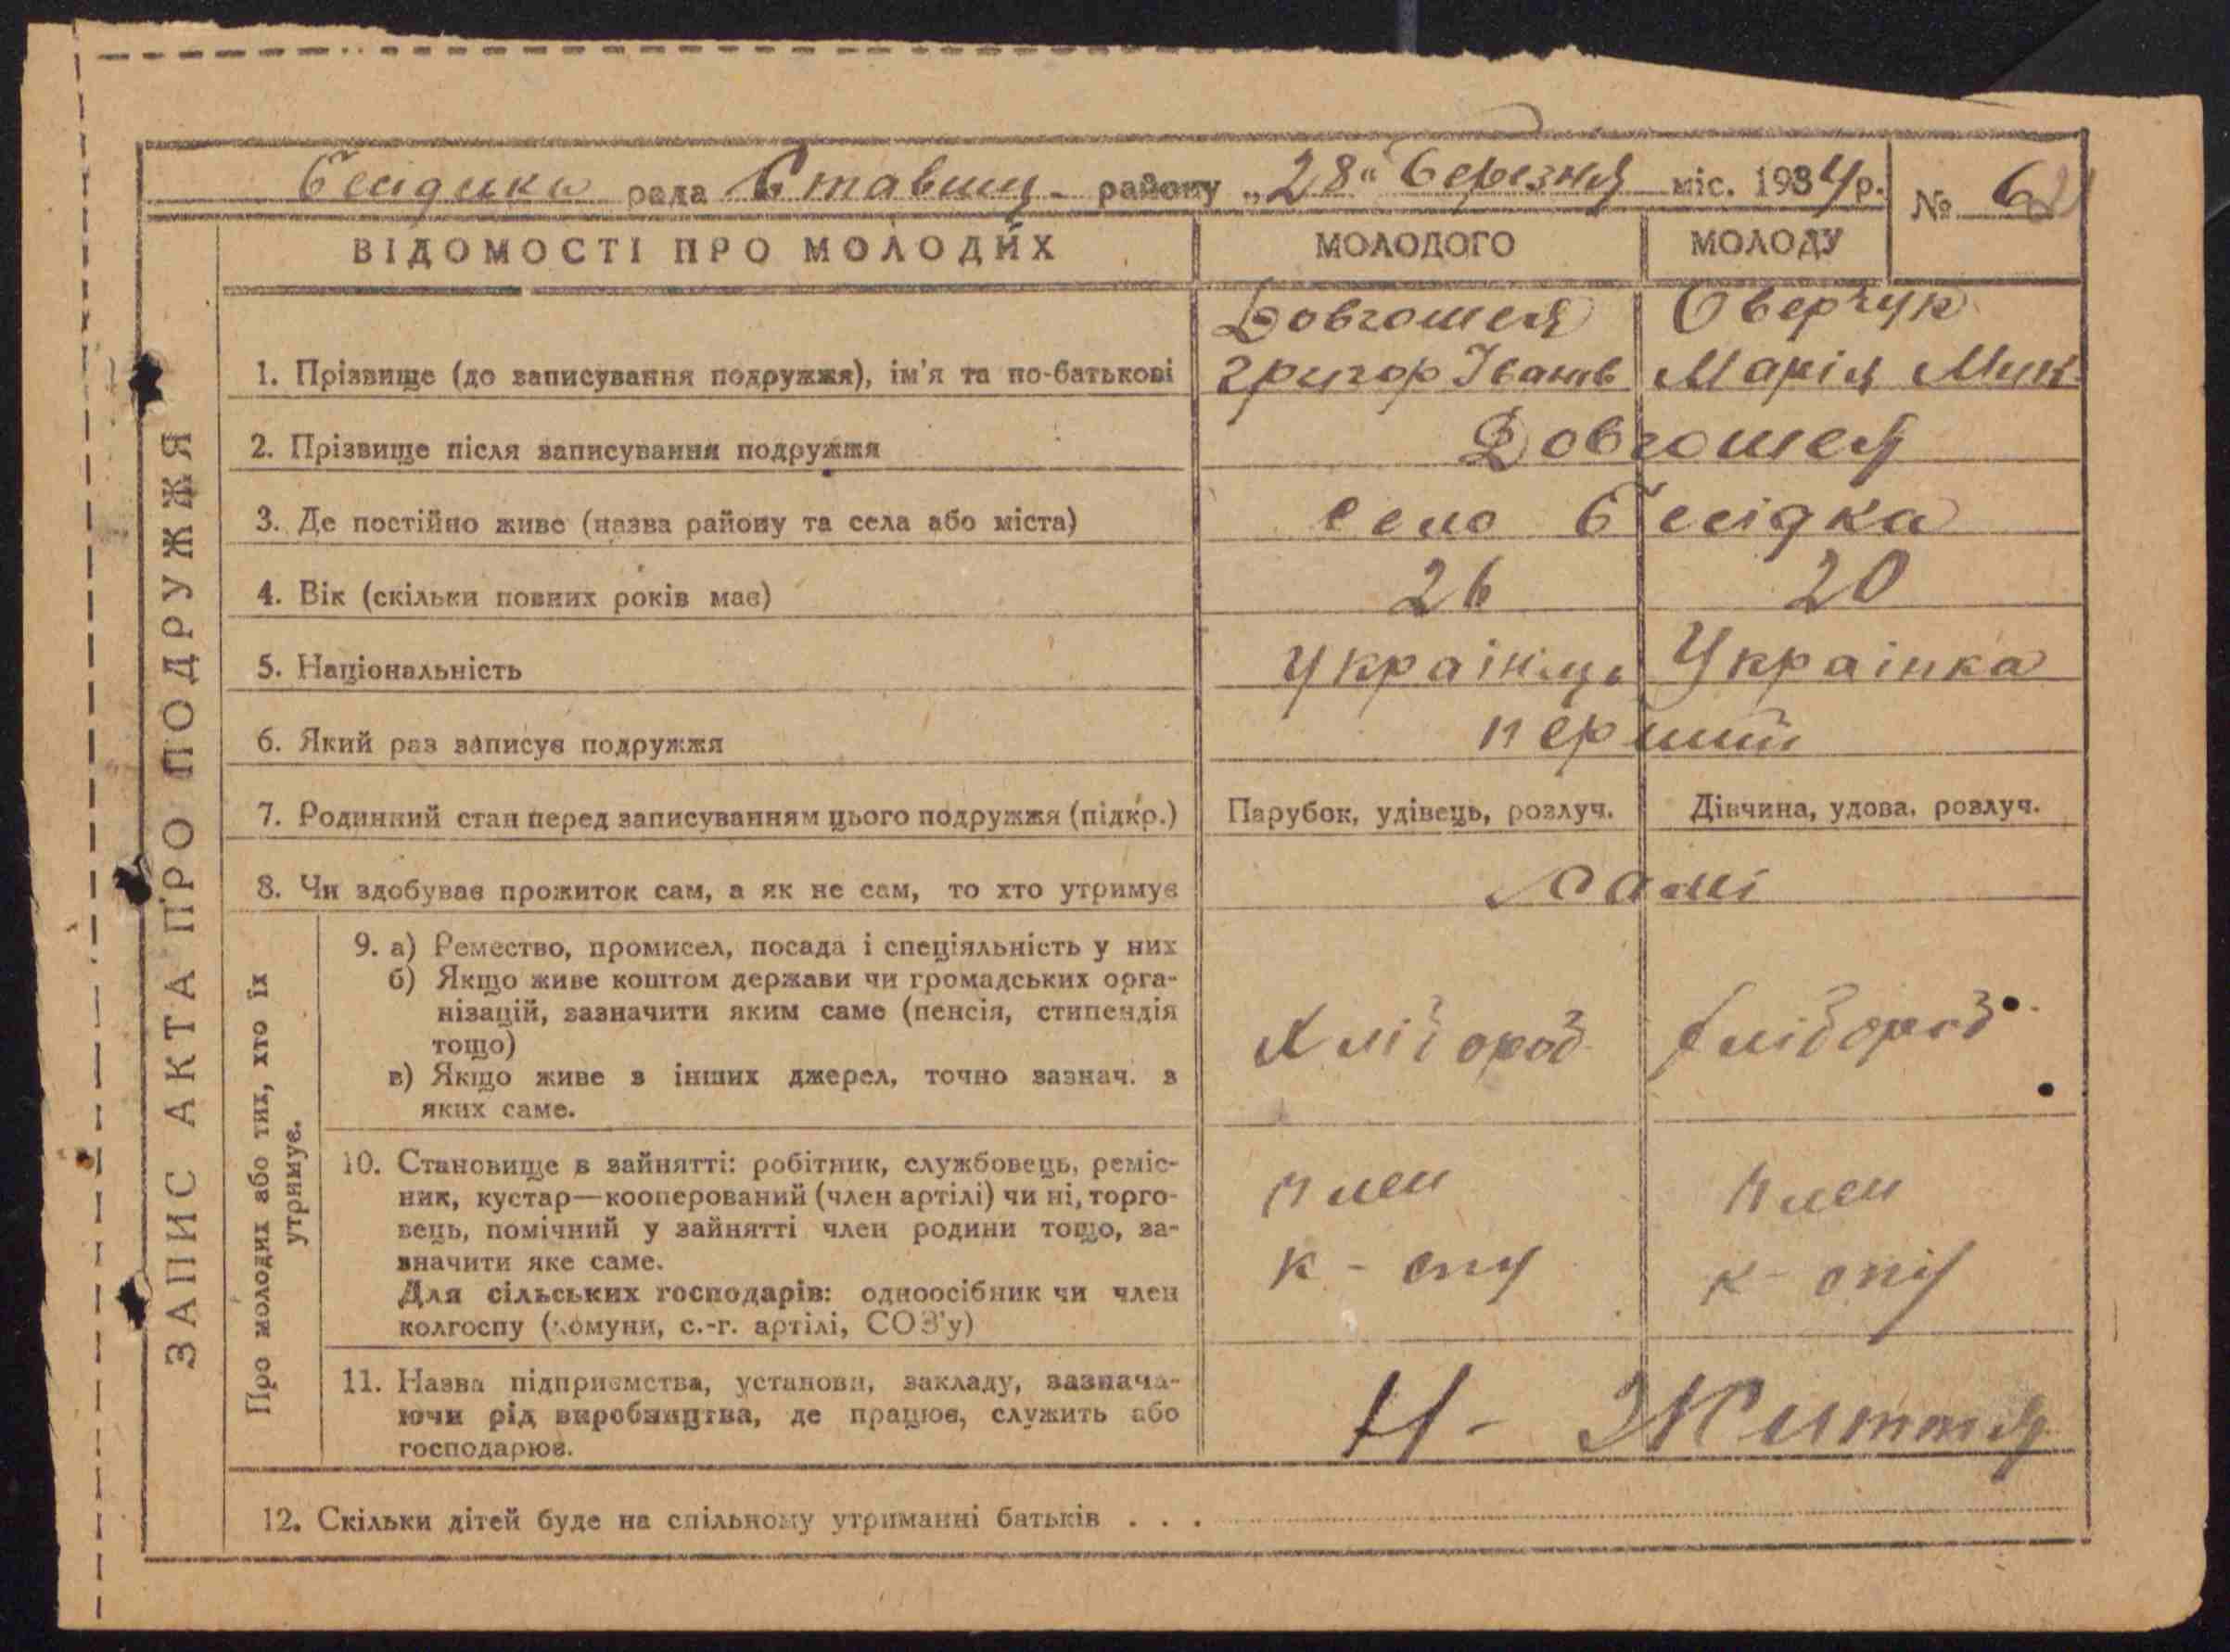 Бесідська рада Ставищ- району „28" березня міс. 1934 р. № 6
ВІДОМОСТІ ПРО МОЛОДИХ МОЛОДОГО МОЛОДУ
ЗАПИС АКТА ПРО ПОДРУЖЖЯ
Довгошея Оверчук
1. Прізвище (до записування подружжя), ім'я та по-батькові Григор Іванів Марія Мик
2. Прізвище після записування подружжя Довгошея
3. Де постійно живе (назва району та села або міста) село Бесідка
4. Вік (скільки повних років має) 26 20
5. Національність Українць Українка
6. Який раз записує подружжя перший
7. Родинний стан перед записуванням цього подружжя (підкр.) Парубок, удівець, розлуч. Дівчина, удова, розлуч.
8. Чи здобуває прожиток сам, а як не сам, то хто утримує Самі
Про молодих або тих, хто їх
утримує.
9. а) Ремество, промисел, посада і спеціяльність у них
б) Якщо живе коштом держави чи громадських орга-
нізацій, зазначити яким саме (пенсія, стипендія
тощо) Хлібороб хлібороб
в) Якщо живе з інших джерел, точно зазнач. з
яких саме.
10. Становище в зайнятті: робітник, службовець, реміс-
ник, кустар—кооперований (член артілі) чи ні, торго- член член
вець, помічний у зайнятті член родини тощо, за-
значити яке саме. к-
Для сільських господарів: одноосібник чи член к-
колгоспу (комуни, с.-г. артілі, СОЗ'у)
11. Назва підприємства, установи, закладу, зазнача-
ючи рід виробництва, де працює, служить або Н- Життя
господарює.
12. Скільки дітей буде на спільному утриманні батьків . . .